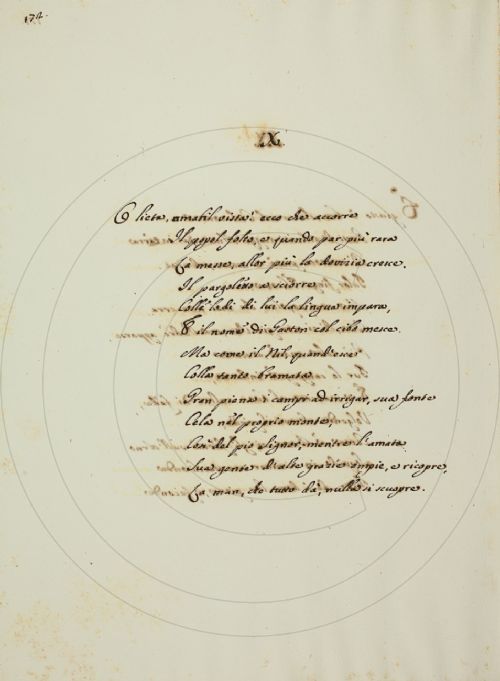 174.
IX.
O lieta, amabil vista! ecco che accorre
Il popol folto, e quando par più rara
La messe, allor più la dovizia cresce.
Il pargoletto a sciorre
Colle lodi di lui la lingua impara,
E il nome di Gaston col cibo mesce.
Ma come il Nil, quand'esce
Colla tanto bramata
Gran piena i campi ad irrigar, sua fonte
Cela nel proprio monte;
Così del pio Signor, mentre l'amata
Sua gente d'alte grazie empie, e ricopre,
La man, che tutto dà, nulla si scuopre.